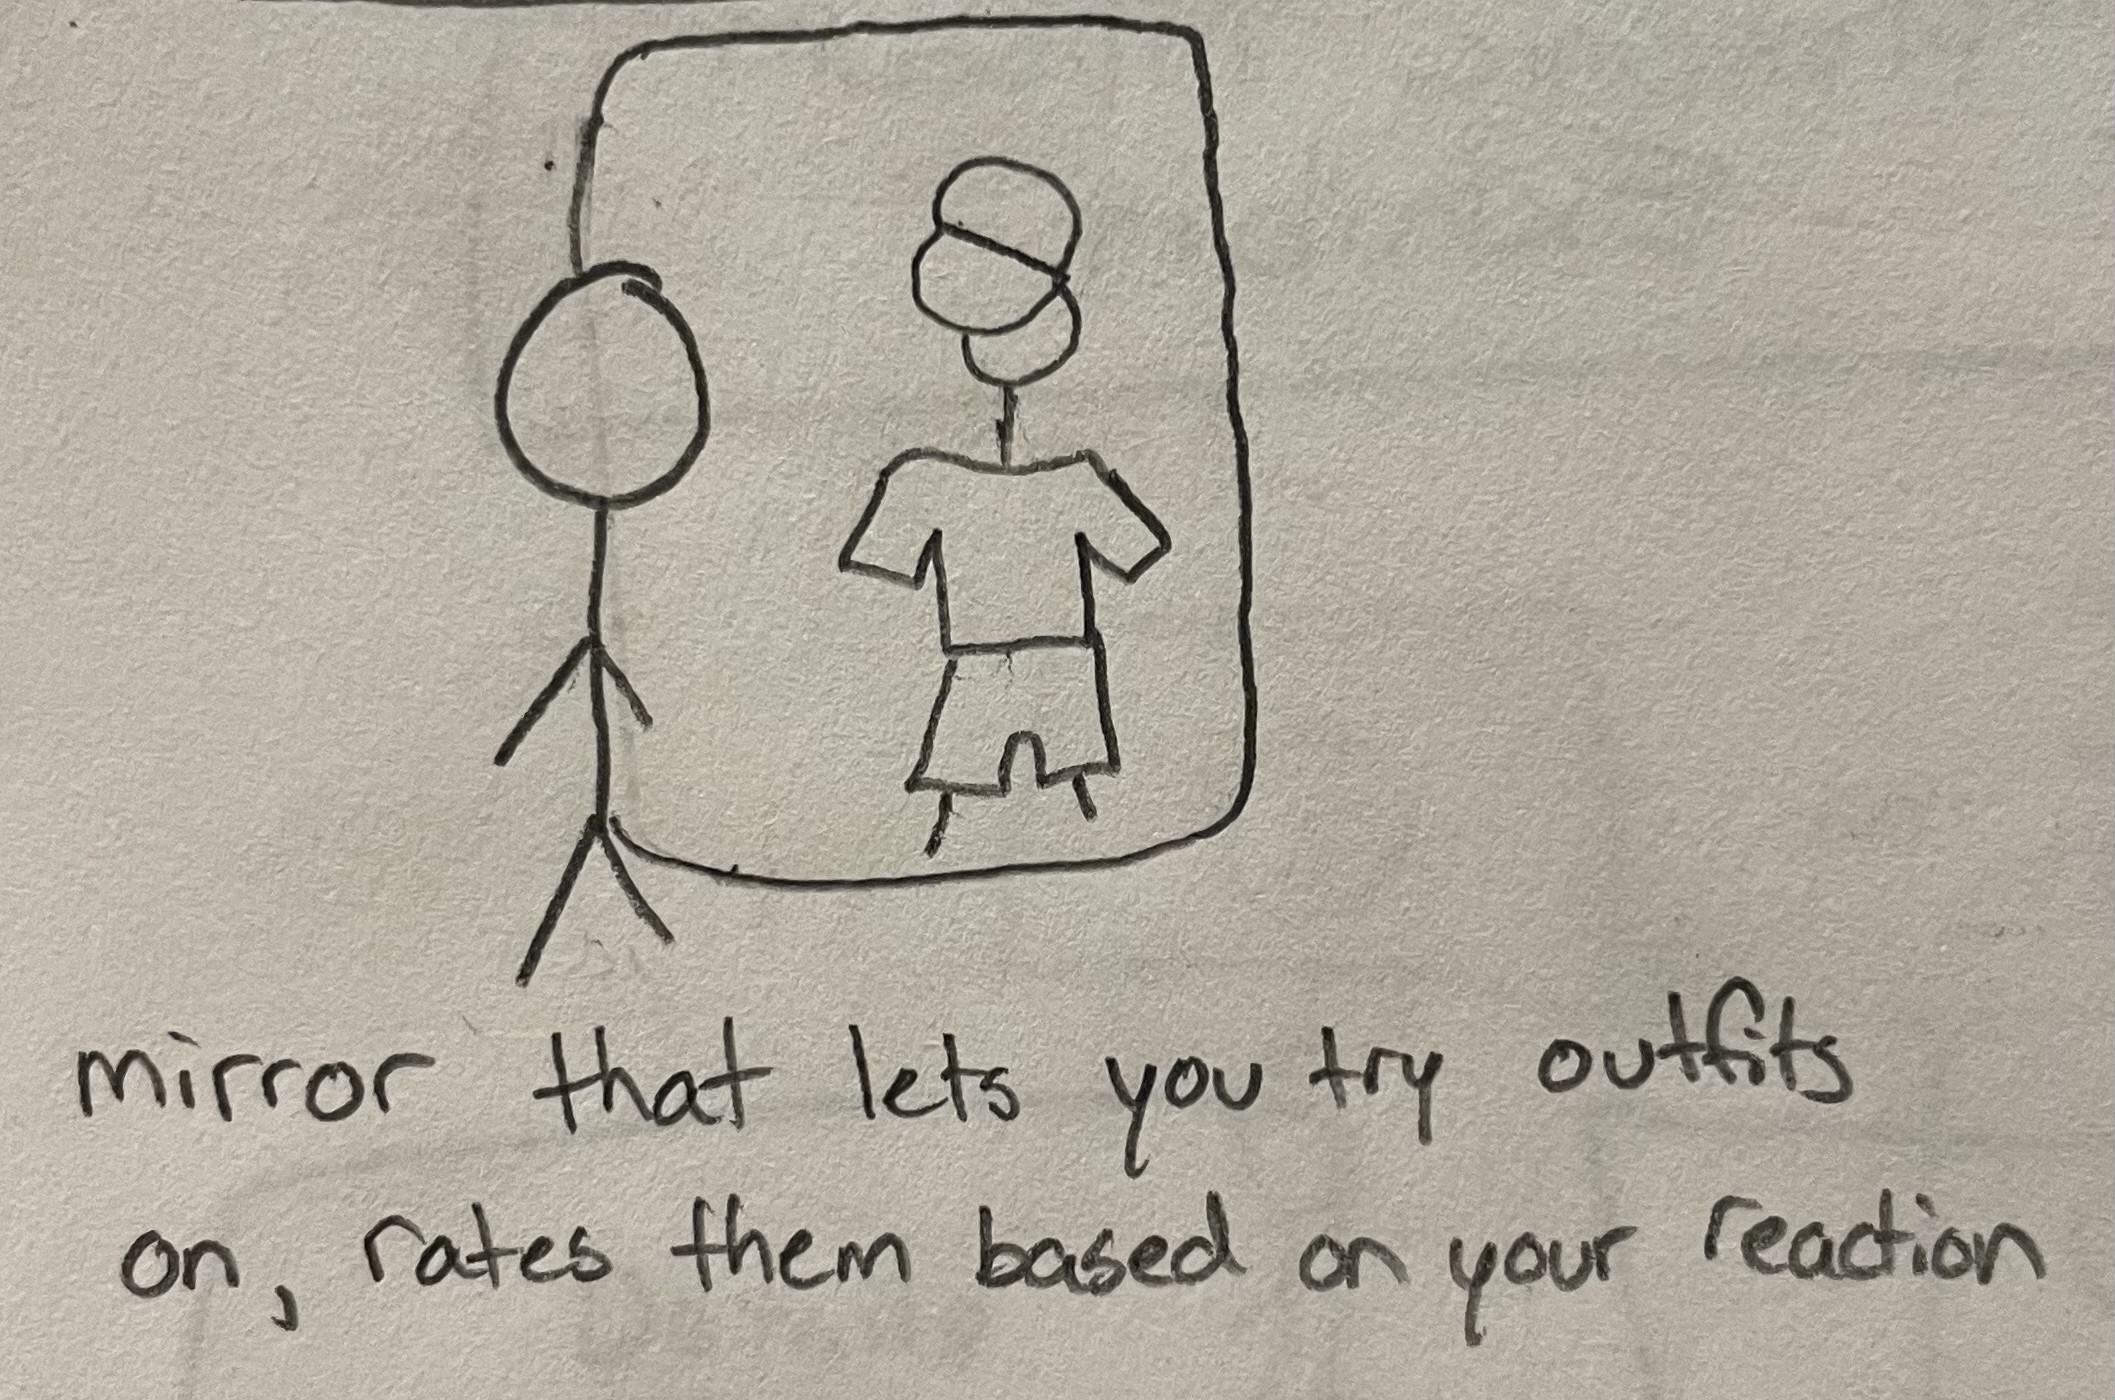 mirror that lets you try outfits
on, rates them based on your reaction